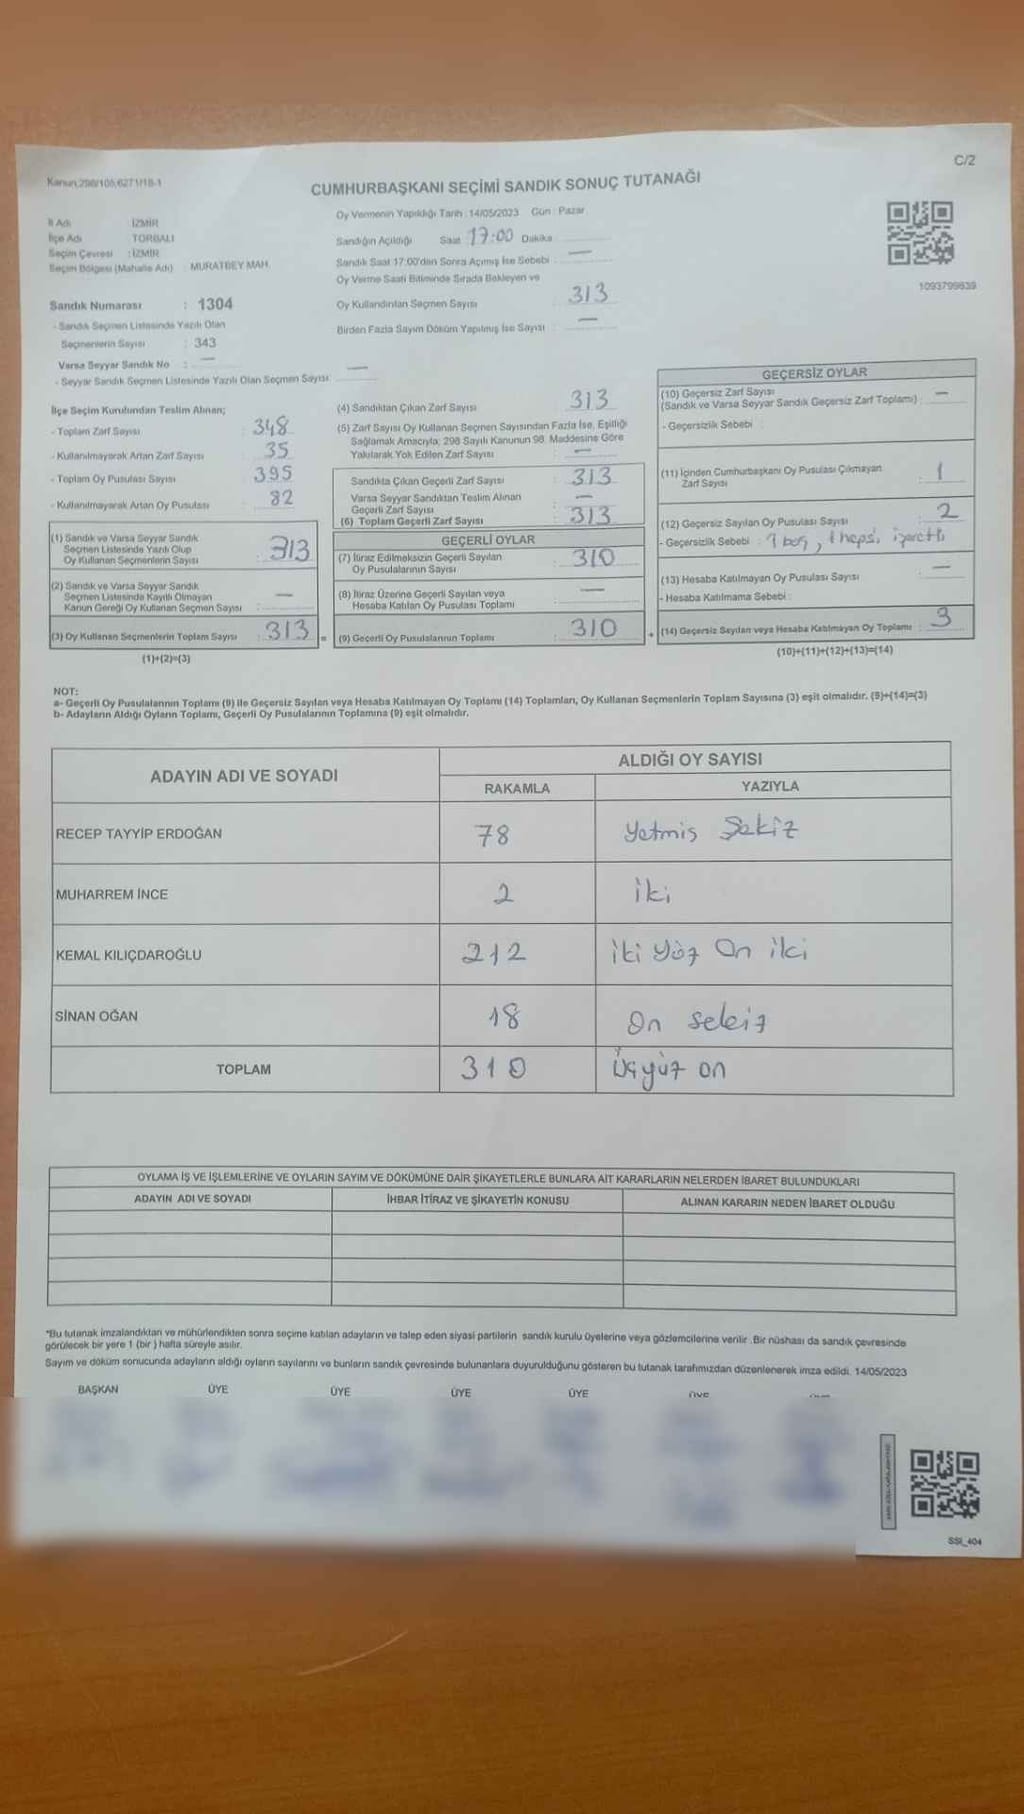 C/2
Kanun:298/105,6271/18-1
CUMHURBAŞKANI SEÇİMİ SANDIK SONUÇ TUTANAĞI
İl Adı : İZMİR
İlçe Adı : TORBALI
Seçim Çevresi : İZMİR
Seçim Bölgesi (Mahalle Adı) : MURATBEY MAH.
Sandık Numarası : 1304
- Sandık Seçmen Listesinde Yazılı Olan
Seçmenlerin Sayısı : 343
Varsa Seyyar Sandık No : —
- Seyyar Sandık Seçmen Listesinde Yazılı Olan Seçmen Sayısı : —
Oy Vermenin Yapıldığı Tarih : 14/05/2023 Gün : Pazar
Sandığın Açıldığı Saat : 17:00 Dakika
Sandık Saat 17:00'dan Sonra Açılmış İse Sebebi : —
Oy Verme Saati Bitiminde Sırada Bekleyen ve
Oy Kullandırılan Seçmen Sayısı : 313
Birden Fazla Sayım Döküm Yapılmış İse Sayısı : —
1093799639
İlçe Seçim Kurulundan Teslim Alınan;
- Toplam Zarf Sayısı : 348
- Kullanılmayarak Artan Zarf Sayısı : 35
- Toplam Oy Pusulası Sayısı : 395
- Kullanılmayarak Artan Oy Pusulası : 82
(1) Sandık ve Varsa Seyyar Sandık
Seçmen Listesinde Yazılı Olup
Oy Kullanan Seçmenlerin Sayısı : 313
(2) Sandık ve Varsa Seyyar Sandık
Seçmen Listesinde Kayıtlı Olmayan
Kanun Gereği Oy Kullanan Seçmen Sayısı : —
(3) Oy Kullanan Seçmenlerin Toplam Sayısı : 313 =
(1)+(2)=(3)
(4) Sandıktan Çıkan Zarf Sayısı : 313
(5) Zarf Sayısı Oy Kullanan Seçmen Sayısından Fazla İse, Eşitliği
Sağlamak Amacıyla; 298 Sayılı Kanunun 98. Maddesine Göre
Yakılarak Yok Edilen Zarf Sayısı : —
Sandıkta Çıkan Geçerli Zarf Sayısı : 313
Varsa Seyyar Sandıktan Teslim Alınan
Geçerli Zarf Sayısı : —
(6) Toplam Geçerli Zarf Sayısı : 313
GEÇERLİ OYLAR
(7) İtiraz Edilmeksizin Geçerli Sayılan
Oy Pusulalarının Sayısı : 310
(8) İtiraz Üzerine Geçerli Sayılan veya
Hesaba Katılan Oy Pusulası Toplamı : —
(9) Geçerli Oy Pusulalarının Toplamı : 310 +
GEÇERSİZ OYLAR
(10) Geçersiz Zarf Sayısı
(Sandık ve Varsa Seyyar Sandık Geçersiz Zarf Toplamı) : —
- Geçersizlik Sebebi :
(11) İçinden Cumhurbaşkanı Oy Pusulası Çıkmayan
Zarf Sayısı : 1
(12) Geçersiz Sayılan Oy Pusulası Sayısı : 2
- Geçersizlik Sebebi : 1 boş, 1 hepsi işaretli
(13) Hesaba Katılmayan Oy Pusulası Sayısı : —
- Hesaba Katılmama Sebebi :
(14) Geçersiz Sayılan veya Hesaba Katılmayan Oy Toplamı : 3
(10)+(11)+(12)+(13)=(14)
NOT:
a- Geçerli Oy Pusulalarının Toplamı (9) ile Geçersiz Sayılan veya Hesaba Katılmayan Oy Toplamı (14) Toplamları, Oy Kullanan Seçmenlerin Toplam Sayısına (3) eşit olmalıdır. (9)+(14)=(3)
b- Adayların Aldığı Oyların Toplamı, Geçerli Oy Pusulalarının Toplamına (9) eşit olmalıdır.
ADAYIN ADI VE SOYADI ALDIĞI OY SAYISI
RAKAMLA YAZIYLA
RECEP TAYYİP ERDOĞAN 78 Yetmis Sekiz
MUHARREM İNCE 2 iki
KEMAL KILIÇDAROĞLU 212 iki yüz On iki
SİNAN OĞAN 18 On sekiz
TOPLAM 310 Üçyüz on
OYLAMA İŞ VE İŞLEMLERİNE VE OYLARIN SAYIM VE DÖKÜMÜNE DAİR ŞİKAYETLERLE BUNLARA AİT KARARLARIN NELERDEN İBARET BULUNDUKLARI
ADAYIN ADI VE SOYADI İHBAR İTİRAZ VE ŞİKAYETİN KONUSU ALINAN KARARIN NEDEN İBARET OLDUĞU
*Bu tutanak imzalandıktan ve mühürlendikten sonra seçime katılan adayların ve talep eden siyasi partilerin sandık kurulu üyelerine veya gözlemcilerine verilir. Bir nüshası da sandık çevresinde
görülecek bir yere 1 (bir ) hafta süreyle asılır.
Sayım ve döküm sonucunda adayların aldığı oyların sayılarını ve bunların sandık çevresinde bulunanlara duyurulduğunu gösteren bu tutanak tarafımızdan düzenlenerek imza edildi. 14/05/2023
BAŞKAN ÜYE ÜYE ÜYE ÜYE ÜYE
SSI_404